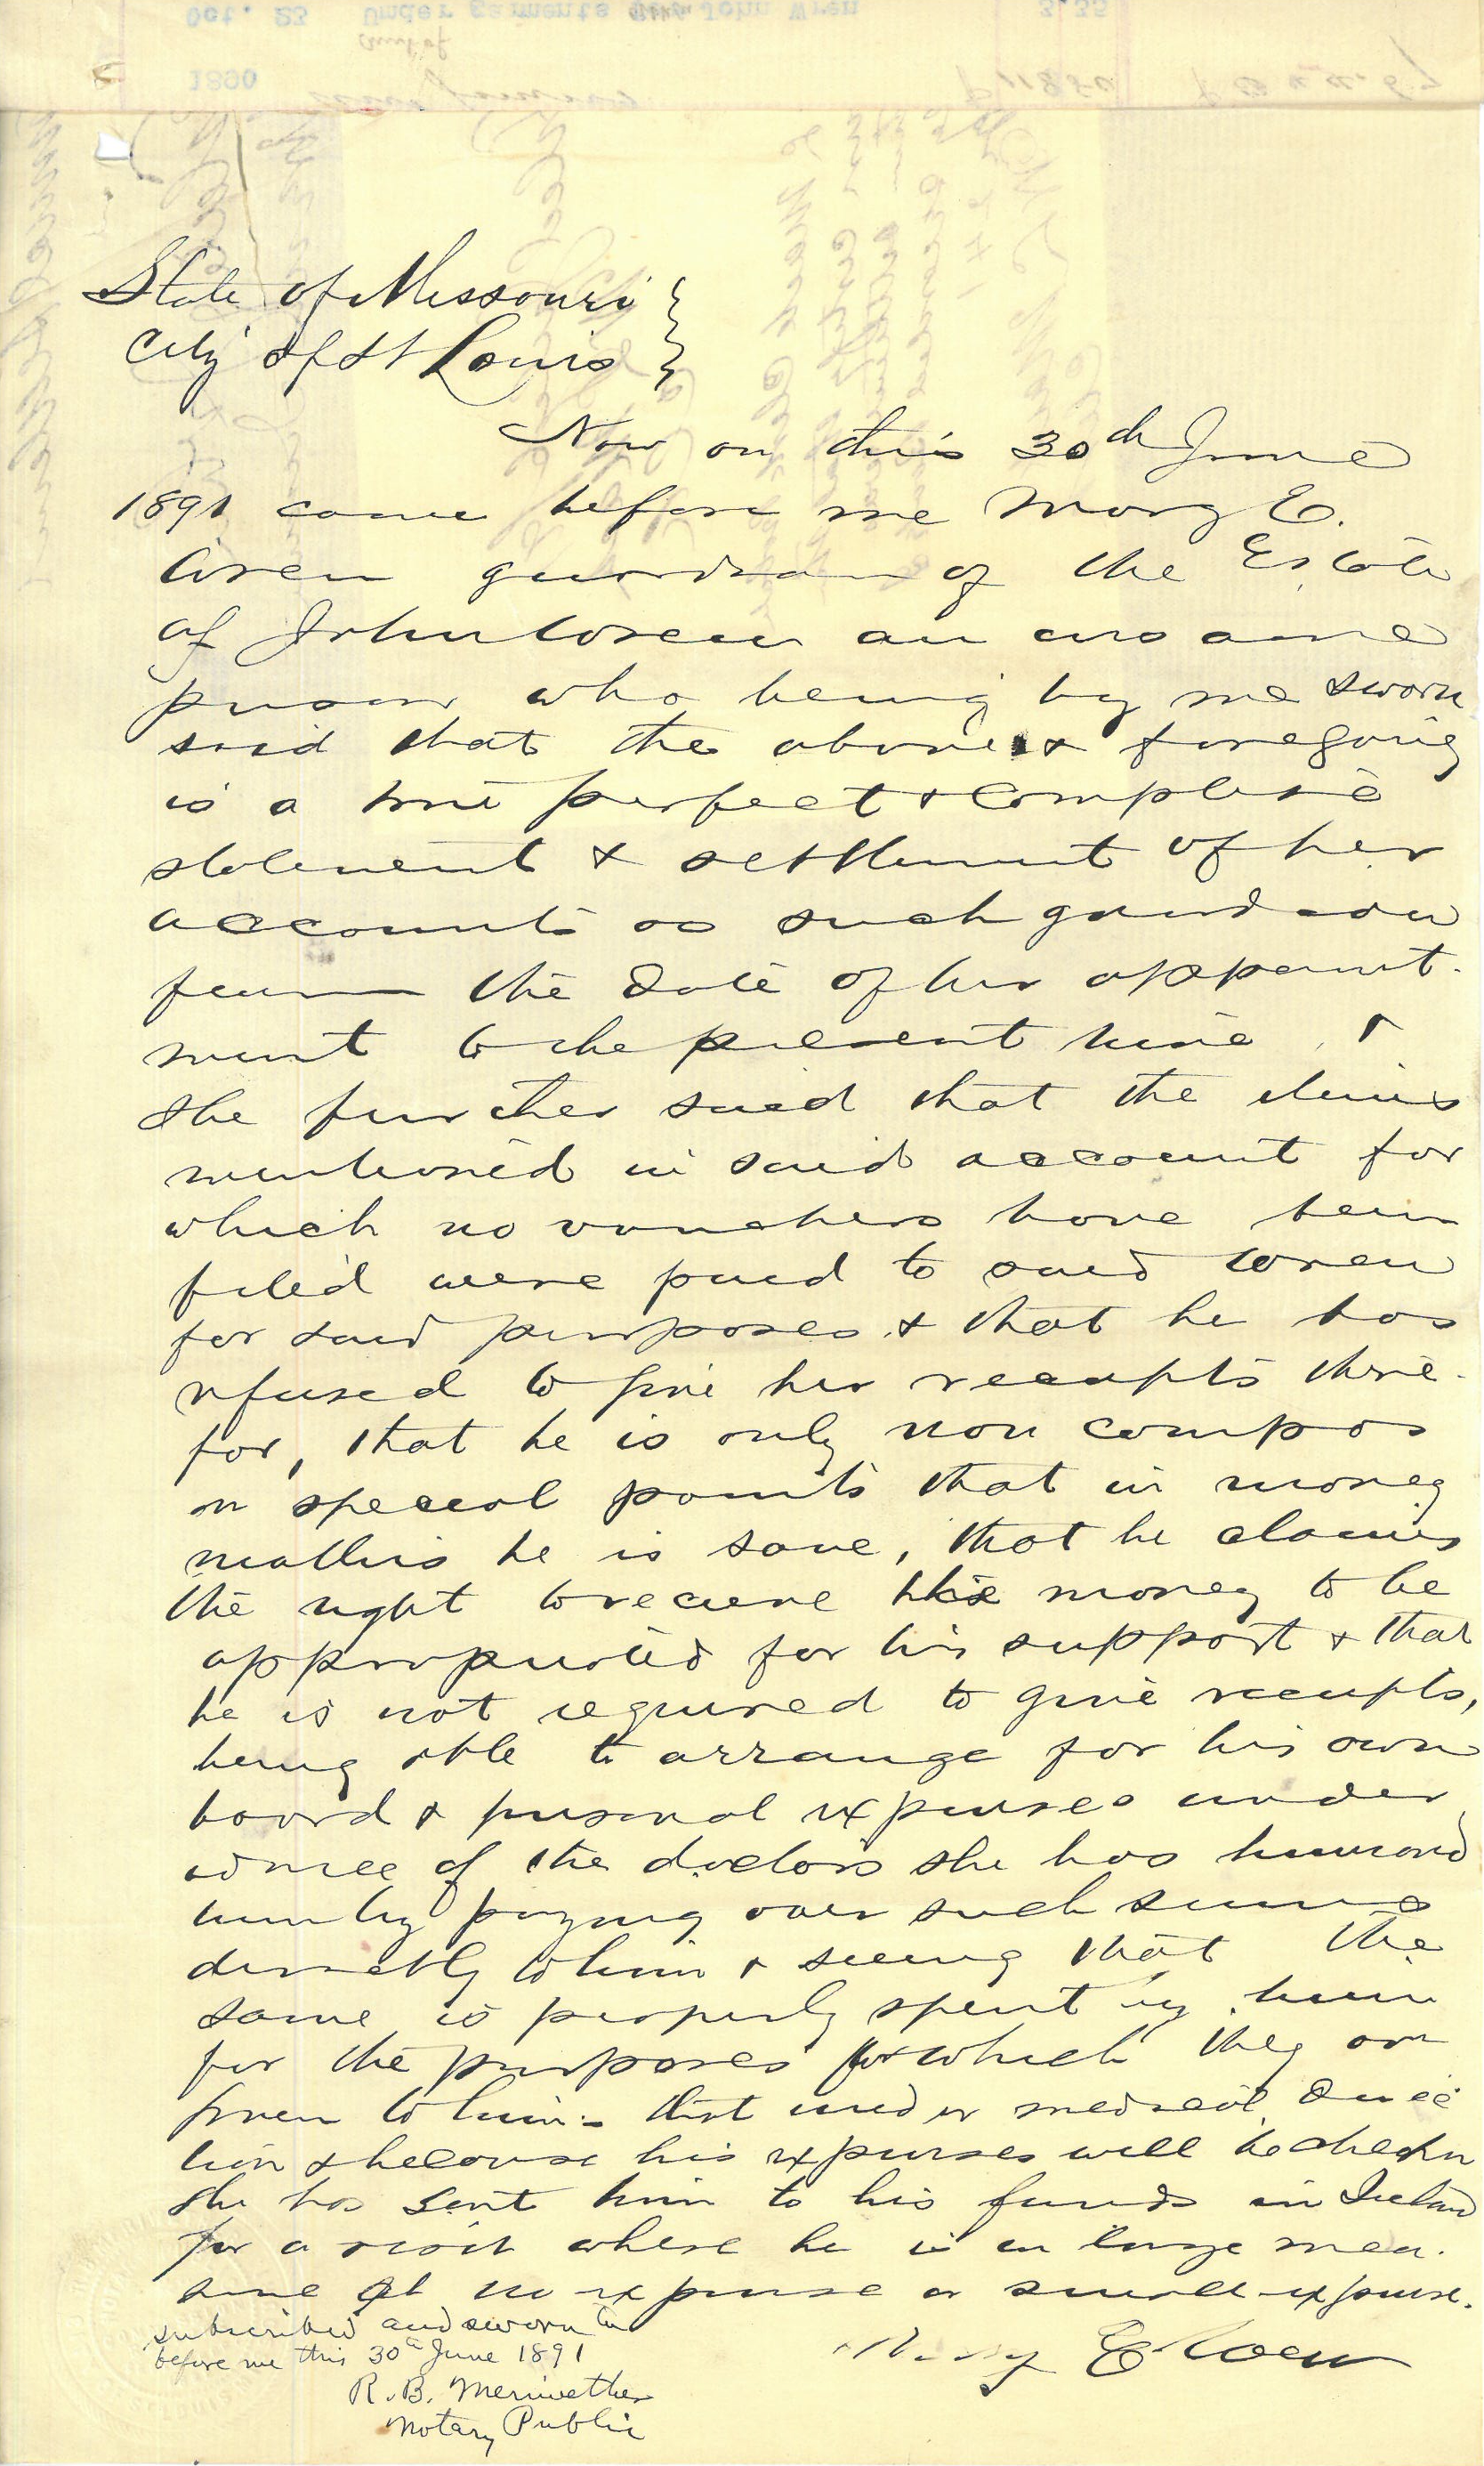 State of Missouri }
City of St Louis }
Now on this 30th June
1891 came before me Mary E.
Wren guardian of the Estate
of John Wren an insane
person who being by me sworn
said that the above & foregoing
is a true perfect & complete
statement & settlement of her
accounts as such guardian
from the date of her appoint-
ment to the present time &
she further said that the items
mentioned in said account for
which no vouchers have been
filed were paid to said Wren
for said purposes & that he has
refused to give her receipts there-
for, that he is only non compos
on special points that in money
matters he is sane, that he claims
the right to receive his money to be
appropriated for his support & that
he is not required to give receipts,
being able to arrange for his own
board & personal expenses under
advice of the doctors she has humored
him by paying over such sums
directly to him & seeing that the
same is properly spent by him
for the purposes for which they are
given to him - that under medical direc
tion & because his expenses will be
she has sent him to his friends in Ireland
for a visit where he is in large mea-
sure at no expense or small expense.
Mary E Wren
subscribed and sworn to
before me this 30th June 1891
R. B. Meriwether
Notary Public
Oct. 23 Under garments John Wren 3.35
1890